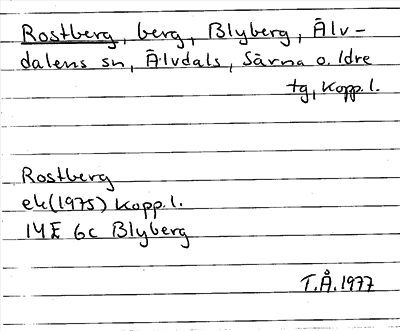 Rostberg, berg, Blyberg, Älv-
dalens sn, Älvdals, Särna o. Idre
tg, Kopp. l.
Rostberg
ek(1975) Kopp. l.
14E 6c Blyberg
T.Å. 1977